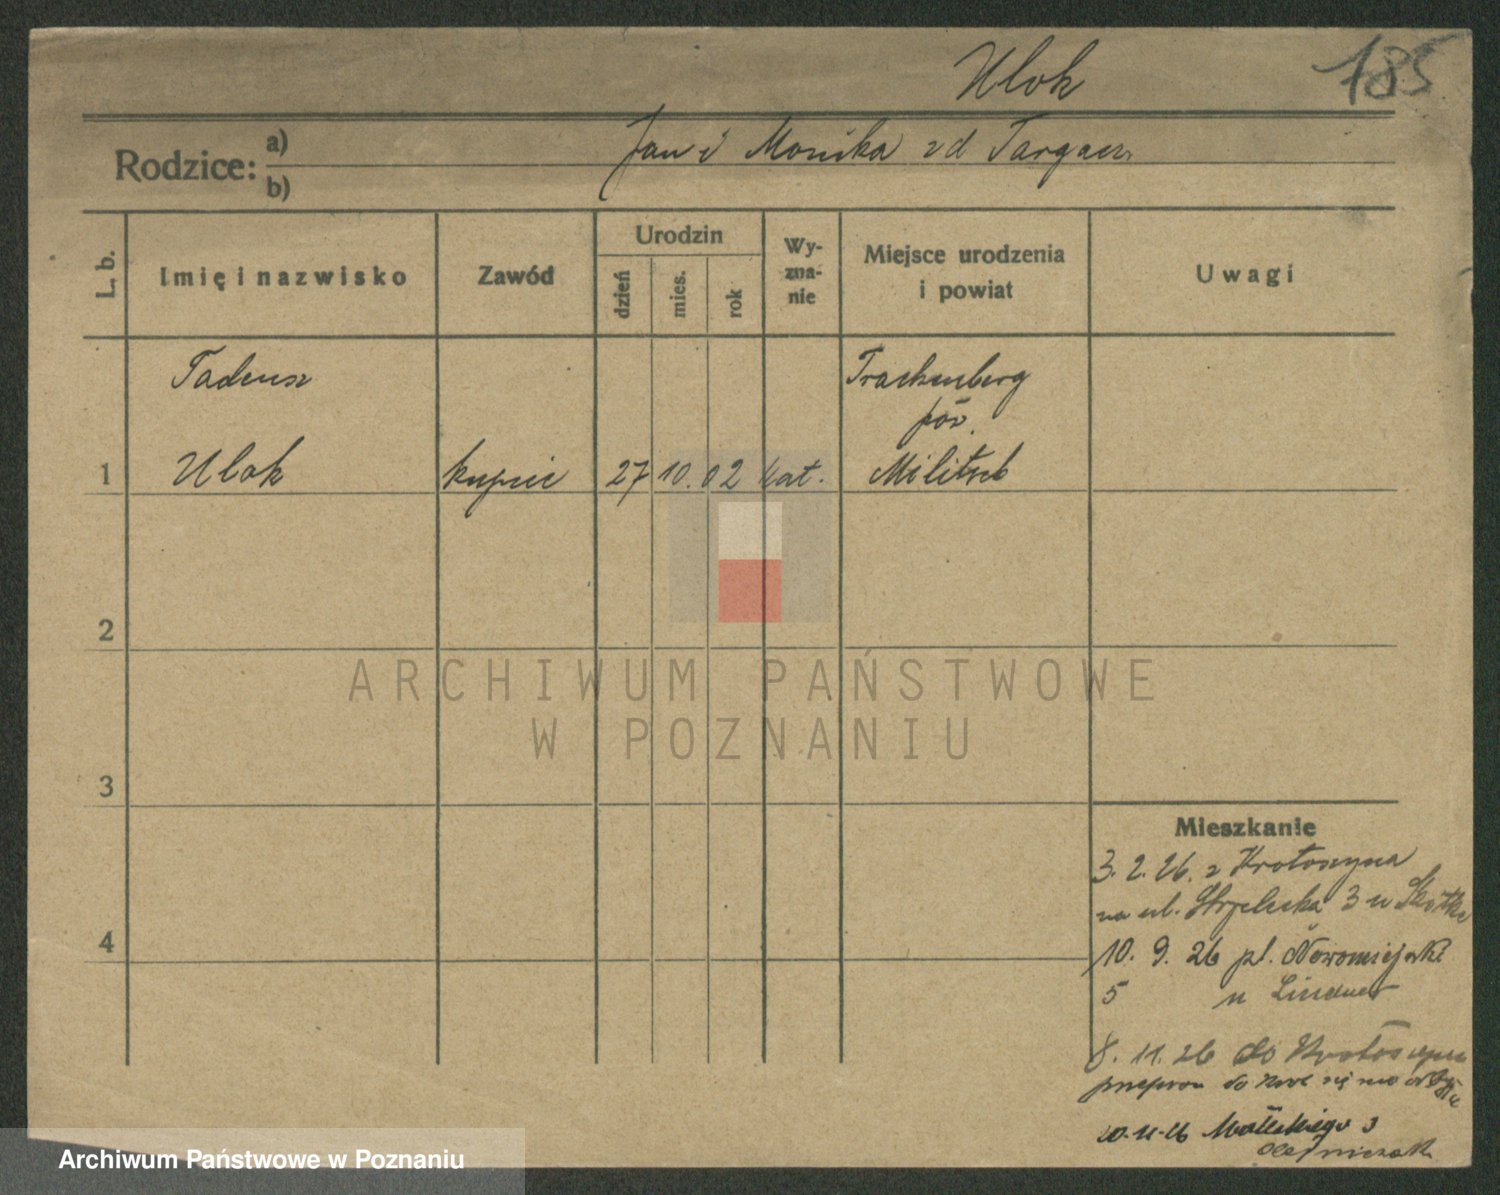 Ulok
185
Rodzice: a) Jan i Monika zd Targacz
b)
L. b.
Imię i nazwisko
Zawód
Urodzin
dzień
mies.
rok
Wy-
zna-
nie
Miejsce urodzenia
i powiat
Uwagi
Tadeusz
Trachenberg
pow.
1 Ulok kupiec 27 10. 02 kat. Militsch
2
ARCHIWUM PAŃSTWOWE
W POZNANIU
3
Mieszkanie
3. 2. 26. z Krotoszyna
na ul. Strzelecka 3 u
4
10. 9. 26 pl. Nowomiejski
5 u Lindner
8. 11. 26 do Krotoszyna
do się nie
20-11-26 Małeckiego 3
Archiwum Państwowe w Poznaniu